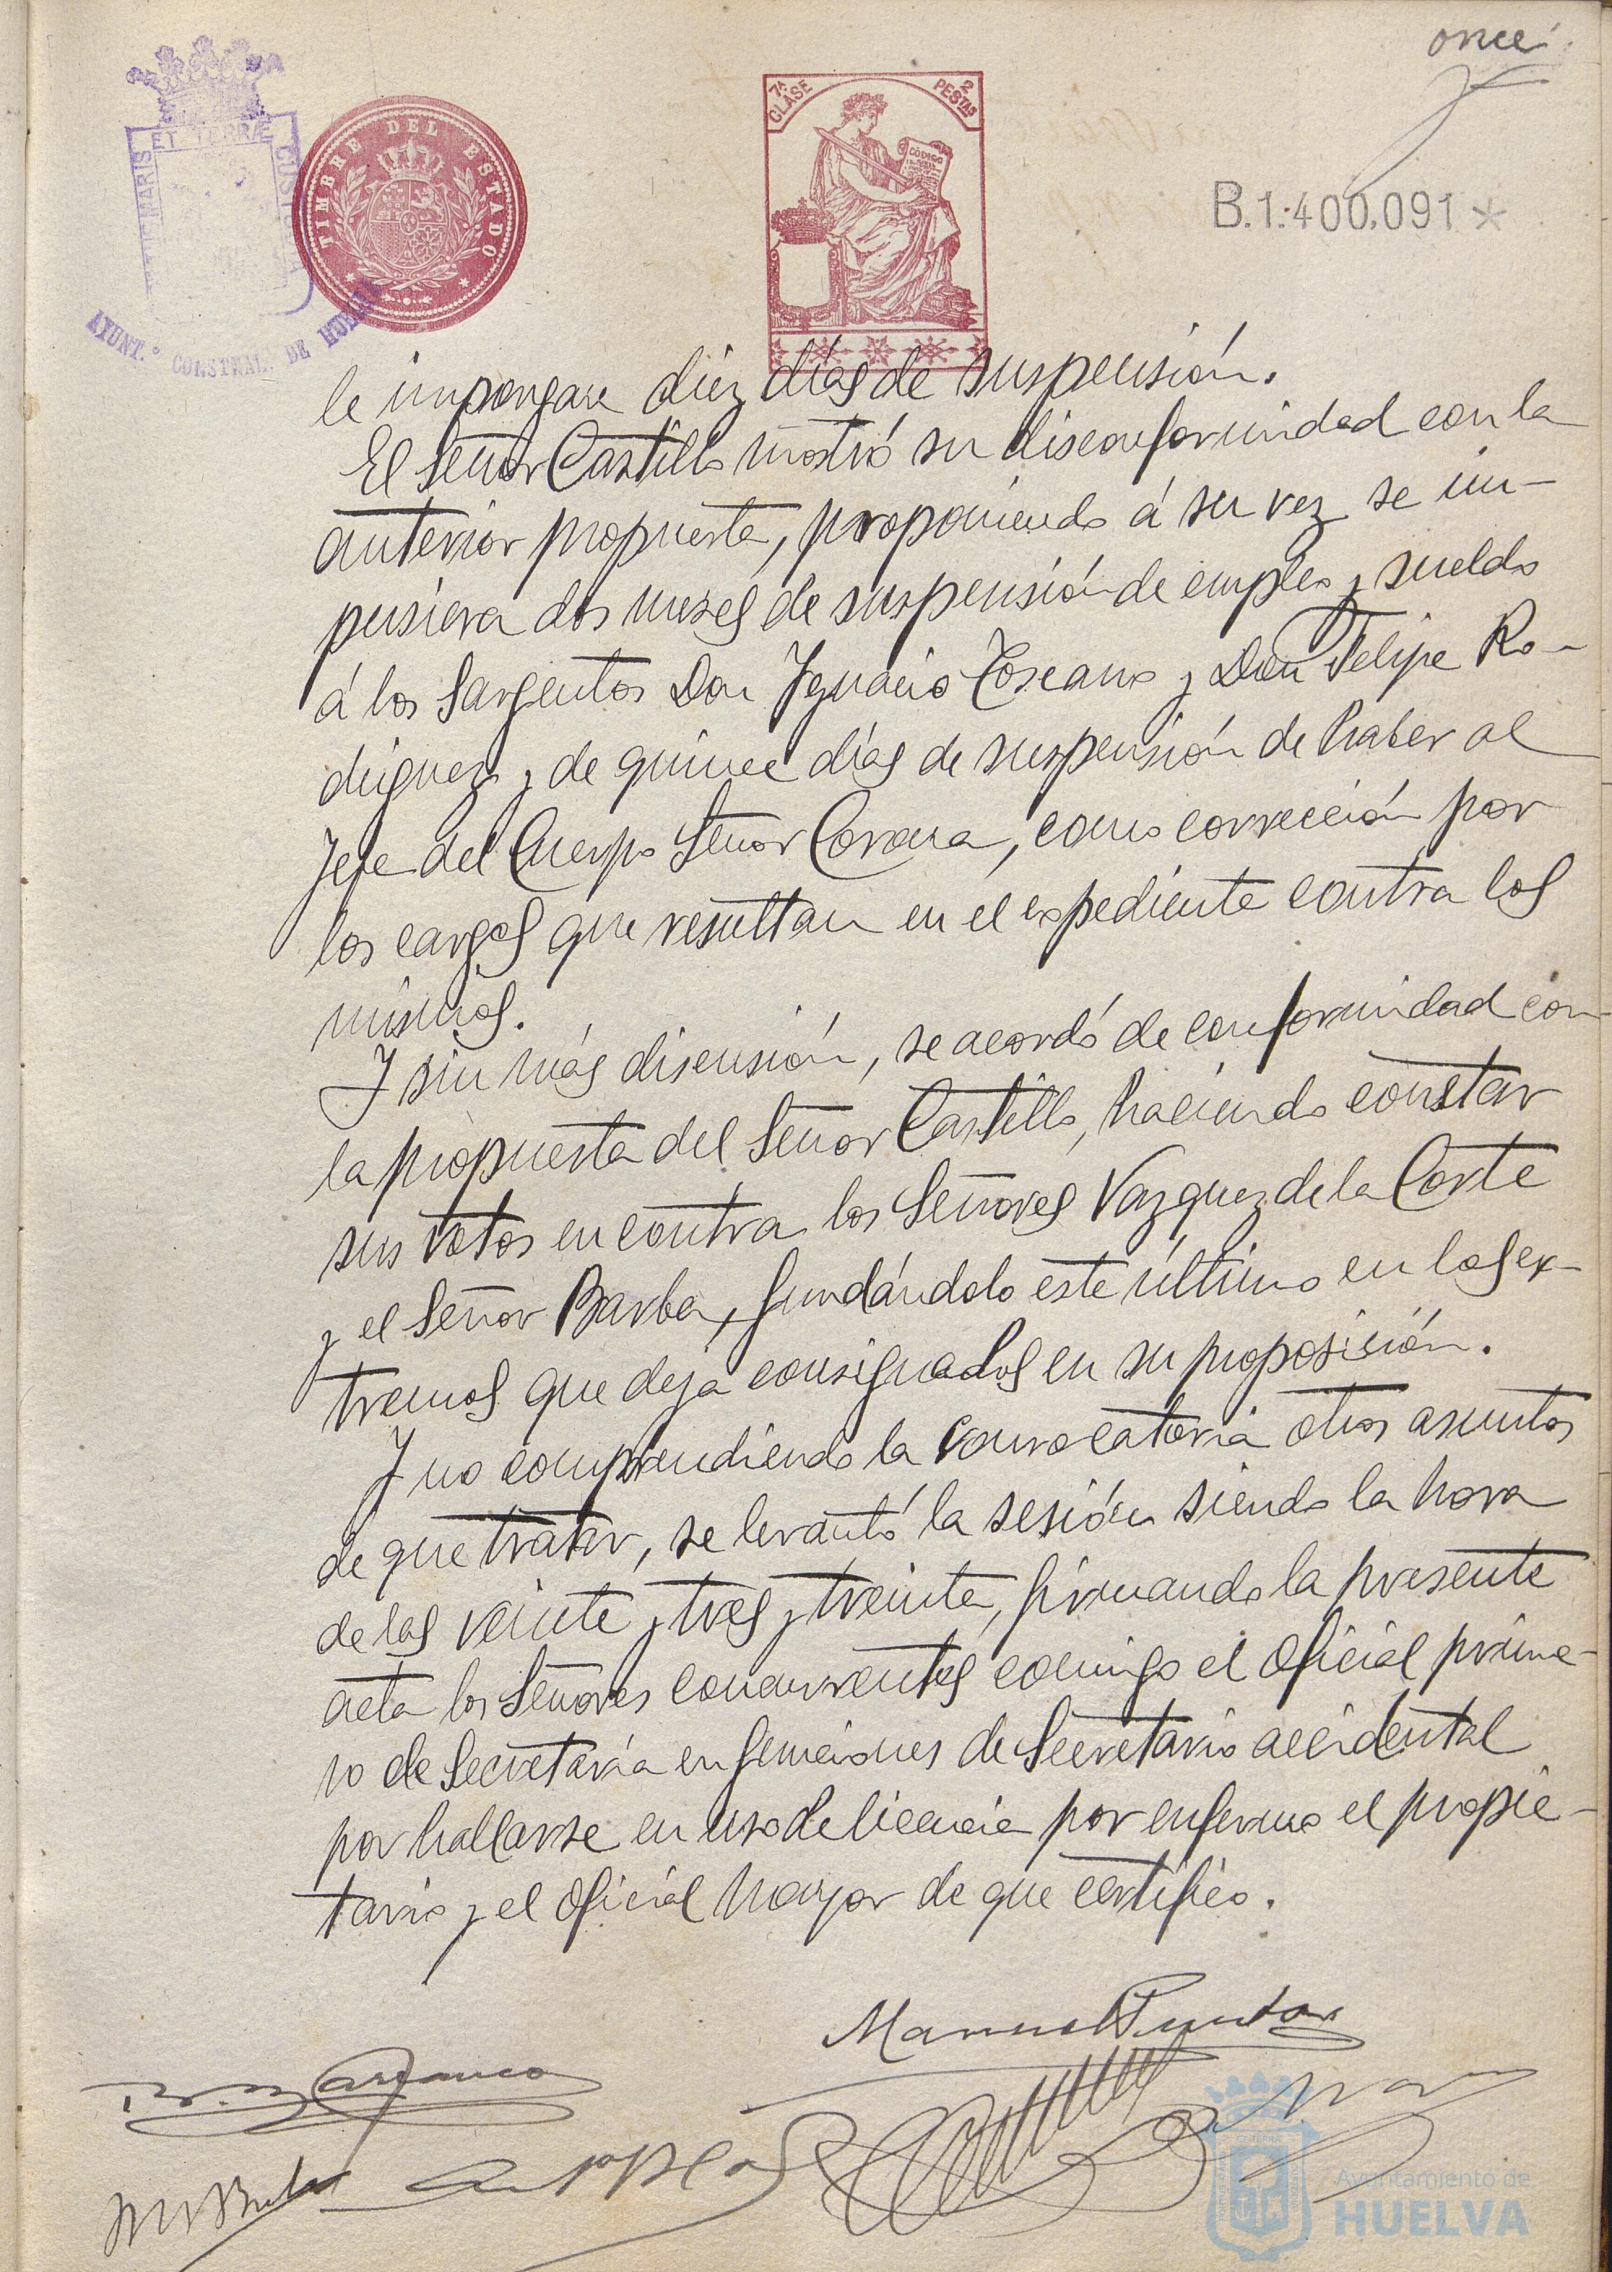 once
7ª CLASE 2 PESTAS
CÓDIGO
TIMBRE DEL ESTADO
MARIS ET TERRÆ CUST
AYUNT.º CONSTNAL. DE HUELVA
B.1.400,091*
le impongan diez días de suspensión.
El Señor Castillo mostró su disconformidad con la
anterior propuesta, proponiendo á su vez se im-
pusiera dos meses de suspensión de empleo y sueldo
á los Sargentos Don Ignacio Toscano y Don Felipe Ro-
driguez y de quince días de suspensión de haber al
Jefe del Cuerpo Señor Corona, como corrección por
los cargos que resultan en el expediente contra los
mismos.
Y sin más discusión, se acordó de conformidad con
la propuesta del Señor Castillo, haciendo constar
sus votos en contra los Señores Vazquez de la Corte
y el Señor Barba, fundándolo este último en los ex-
tremos que deja consignados en su proposición.
Y no comprendiendo la convocatoria otros asuntos
de que tratar, se levantó la sesión siendo la hora
de las veinte y tres y treinta, firmando la presente
acta los Señores concurrentes conmigo el Oficial prime-
ro de Secretaría en funciones de Secretario accidental
por hallarse en uso de licencia por enfermo el propie-
tario y el Oficial Mayor de que certifico.
Manuel
Ayuntamiento de
HUELVA